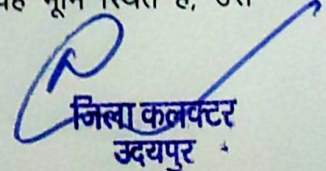 भूमि स्थित है,
जिला कलक्टर
उदयपुर